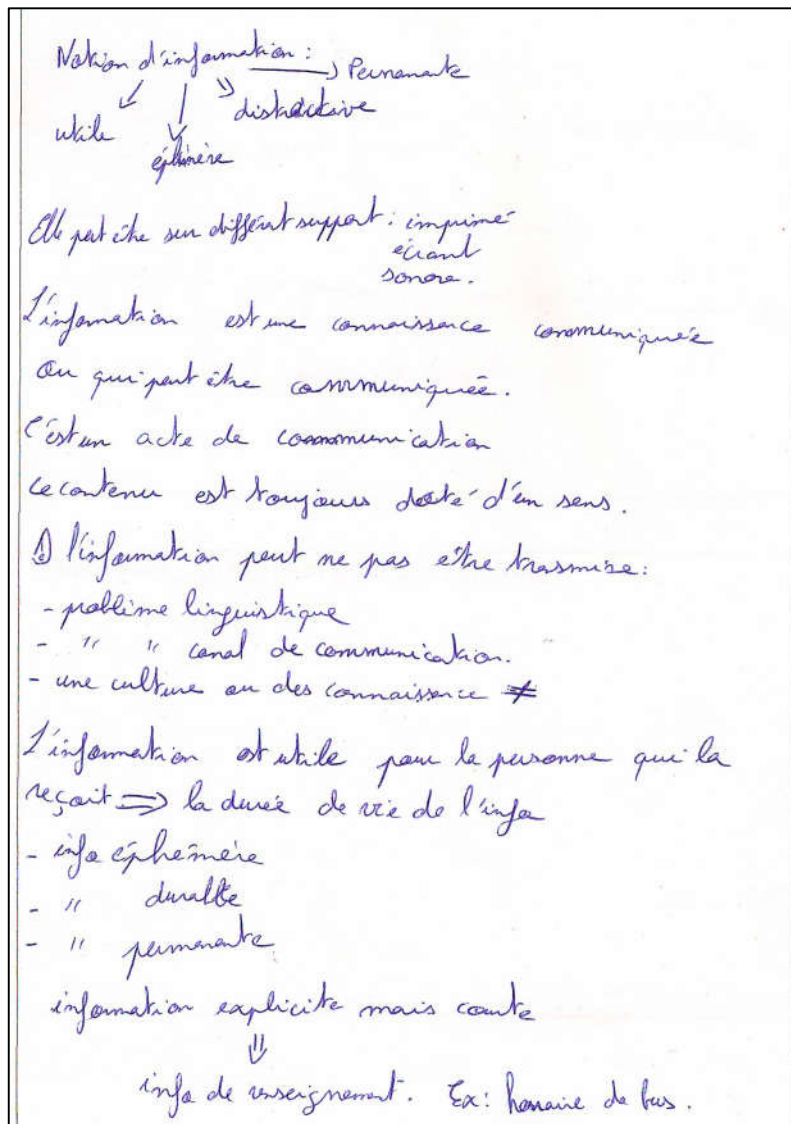 Notion d'information : → Permanante
utile ephémère distractive
Elle peut être sur différent support : imprimé
écrant
sonore.
L'information est une connaissance communiquée
ou qui peut être communiquée.
C'est un acte de communication
Le contenu est toujours doté d'un sens.
① l'information peut ne pas être trasmise :
- problème linguistique
- " " canal de communication.
- une culture ou des connaissance ≠
L'information est utile pour la personne qui la
reçoit ⇒ la durée de vie de l'info
- info éphémère
- " durable
- " permanante
information explicite mais courte
⇓
info de renseignement. Ex : horraire de bus.